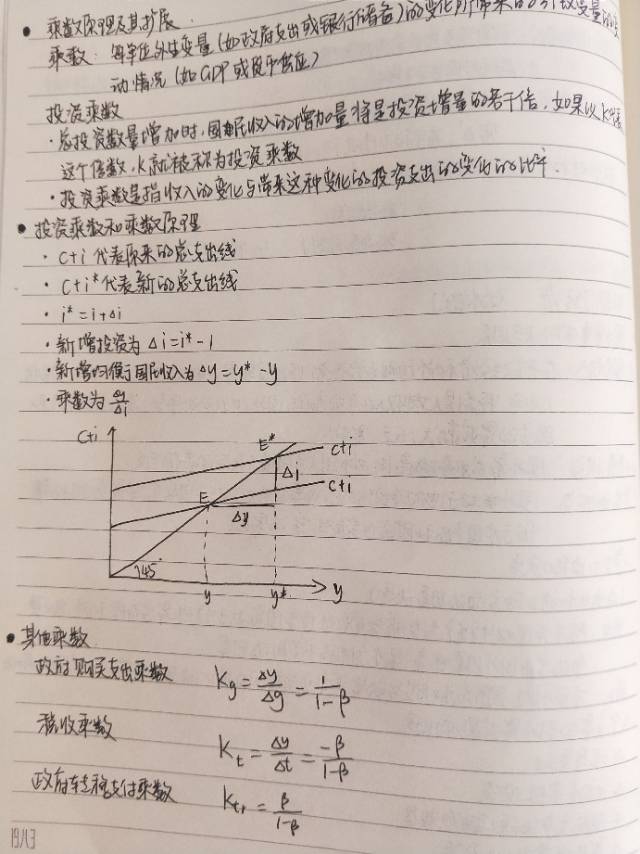 乘数原理及其扩展
乘数: 每单位外生变量(如政府支出或银行储备)的变化所带来的引致变量的变
动情况(如GDP或货币供应)
投资乘数
·总投资数量增加时,国民收入的增加量将是投资增量的若干倍,如果以K
这个倍数,K就被称为投资乘数
·投资乘数是指收入的变化与带来这种变化的投资支出的变化的比率.
投资乘数和乘数原理
·c+i 代表原来的总支出线
·c+i*代表新的总支出线
·i*=i+Δi
·新增投资为 Δi=i*-i
·新增均衡国民收入为Δy=y*-y
·乘数为 Δy/Δi
c+i
E*
c+i
Δi
E
c+i
Δy
45°
y
y*
y
其他乘数
政府购买支出乘数 Kg=Δy/Δg=1/1-β
税收乘数 Kt=Δy/Δt=-β/1-β
政府转移支付乘数 Ktr=β/1-β